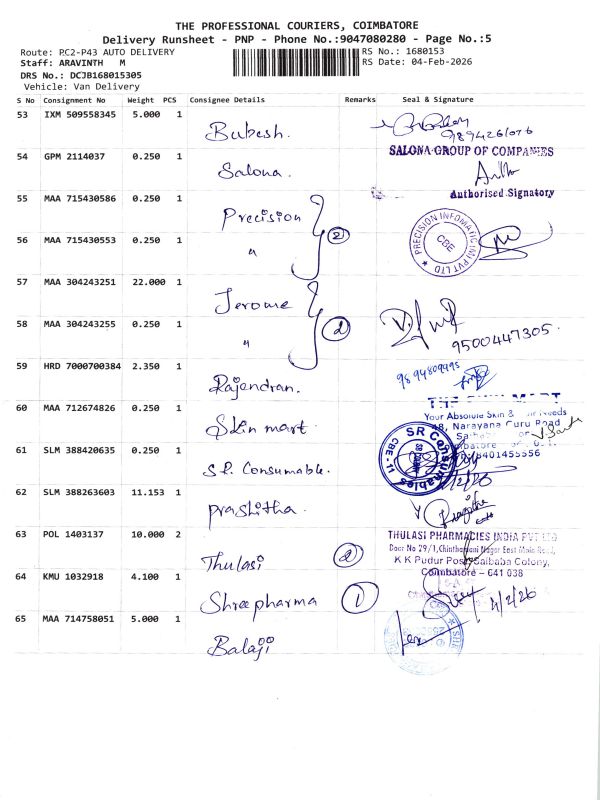 THE PROFESSIONAL COURIERS, COIMBATORE
Delivery Runsheet - PNP - Phone No.:9047080280 - Page No.:5
Route: P.C2-P43 AUTO DELIVERY
RS No.: 1680153
Staff: ARAVINTH M
RS Date: 04-Feb-2026
DRS No.: DCJB168015305
Vehicle: Van Delivery
S No Consignment No Weight PCS Consignee Details Remarks Seal & Signature
53 IXM 509558345 5.000 1
Bubesh.
9894261076
54 GPM 2114037 0.250 1
Salona.
SALONA GROUP OF COMPANIES
Authorised Signatory
55 MAA 715430586 0.250 1
Precision
2
PRECISION INFOMATIC (M) PVT LTD
CBE
56 MAA 715430553 0.250 1
"
57 MAA 304243251 22.000 1
Jerome
2
58 MAA 304243255 0.250 1
"
9500447305.
59 HRD 7000700384 2.350 1
Rajendran.
9894809995
60 MAA 712674826 0.250 1
Skin mart.
THE SKIN MART
Your Absolute Skin & Needs
48, Narayana Guru Road
8401455556
61 SLM 388420635 0.250 1
S.R. Consumable.
SR Consumables
CBE-11
62 SLM 388263603 11.153 1
Prashitha.
63 POL 1403137 10.000 2
Thulasi
2
THULASI PHARMACIES INDIA PVT LTD
Door No 29/1, Chinthamani Nagar East Main Road,
K K Pudur Post, Saibaba Colony,
Coimbatore - 641 038
64 KMU 1032918 4.100 1
Shreepharma
1
4/2/26
65 MAA 714758051 5.000 1
Balaji